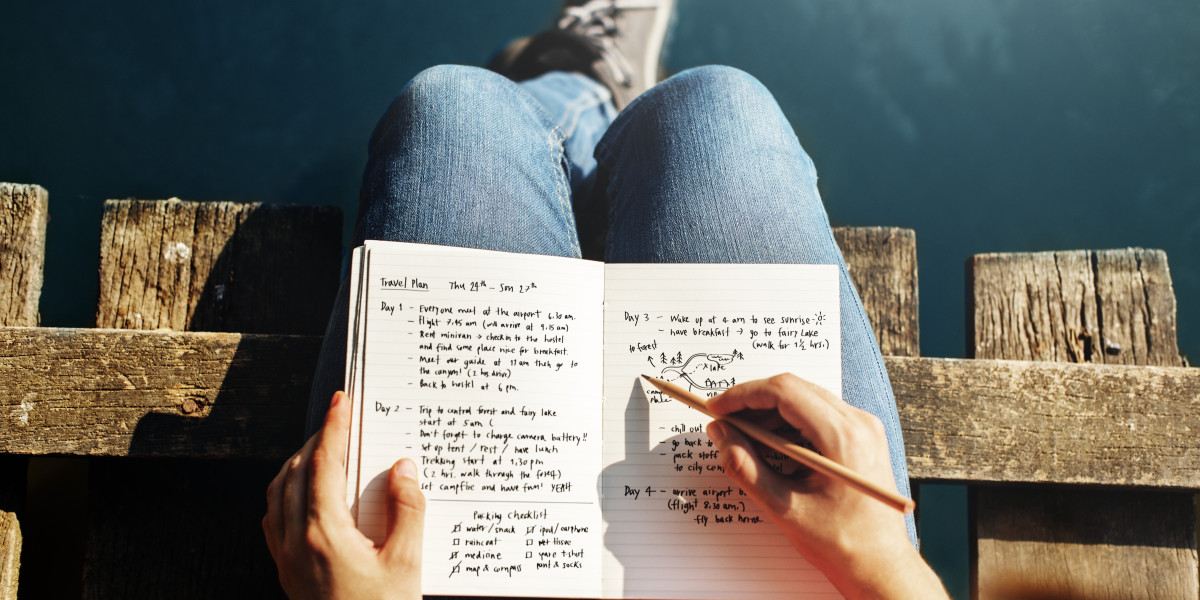 Travel Plan Thu 24th - Sun 27th
Day 1 - Everyone meet at the airport 6.30 am.
- Flight 7.45 am (will arrive at 9.15 am)
- Rent minivan → checkin to the hostel
and find some place nice for breakfast.
- Meet our guide at 11 am then go to
the canyon! (2 hrs drive)
- Back to hostel at 6 pm.
Day 2 - Trip to central forest and fairy lake
start at 5 am (
- Don't forget to charge camera battery!!
- Set up tent / rest / have lunch
- Trekking start at 1.30 pm
(2 hrs. walk through the forest)
- set campfire and have fun! YEAH
Packing Checklist
water/snack
raincoat
medicine
map & compass
ipod/earphone
wet tissue
spare t-shirt
pant & socks
Day 3 - Wake up at 4 am to see sunrise
- have breakfast → go to fairy Lake
(walk for 1 1/2 hrs.)
to forest
lake
- chill out
- go back to
- pack stuff
to city
Day 4 - arrive airport
(flight 8.30 am.)
fly back home